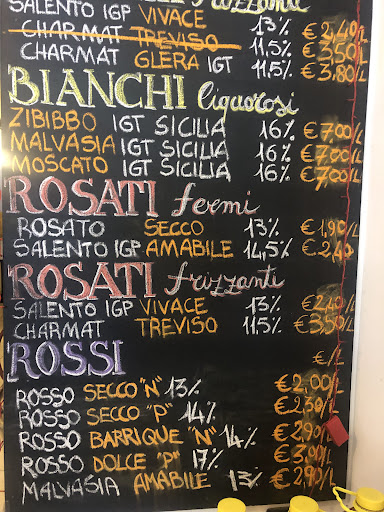 SALENTO IGP VIVACE 13% € 2,40/L
CHARMAT TREVISO 11,5% € 3,50/L
CHARMAT GLERA IGT 11,5% € 3.80/L
BIANCHI liquorosi
ZIBIBBO IGT SICILIA 16% € 7,00/L
MALVASIA IGT SICILIA 16% € 7,00/L
MOSCATO IGT SICILIA 16% € 7,00/L
ROSATI fermi
ROSATO SECCO 13% € 1,90/L
SALENTO IGP AMABILE 14,5% € 2,40
ROSATI frizzanti
SALENTO IGP VIVACE 13% € 2,40/L
CHARMAT TREVISO 11.5% € 3,50/L
ROSSI €/L
ROSSO SECCO "N" 13% € 2,00/L
ROSSO SECCO "P" 14% € 2,30/L
ROSSO BARRIQUE "N" 14% € 2,90/L
ROSSO DOLCE "P" 17% € 3,00/L
MALVASIA AMABILE 13% € 2,90/L